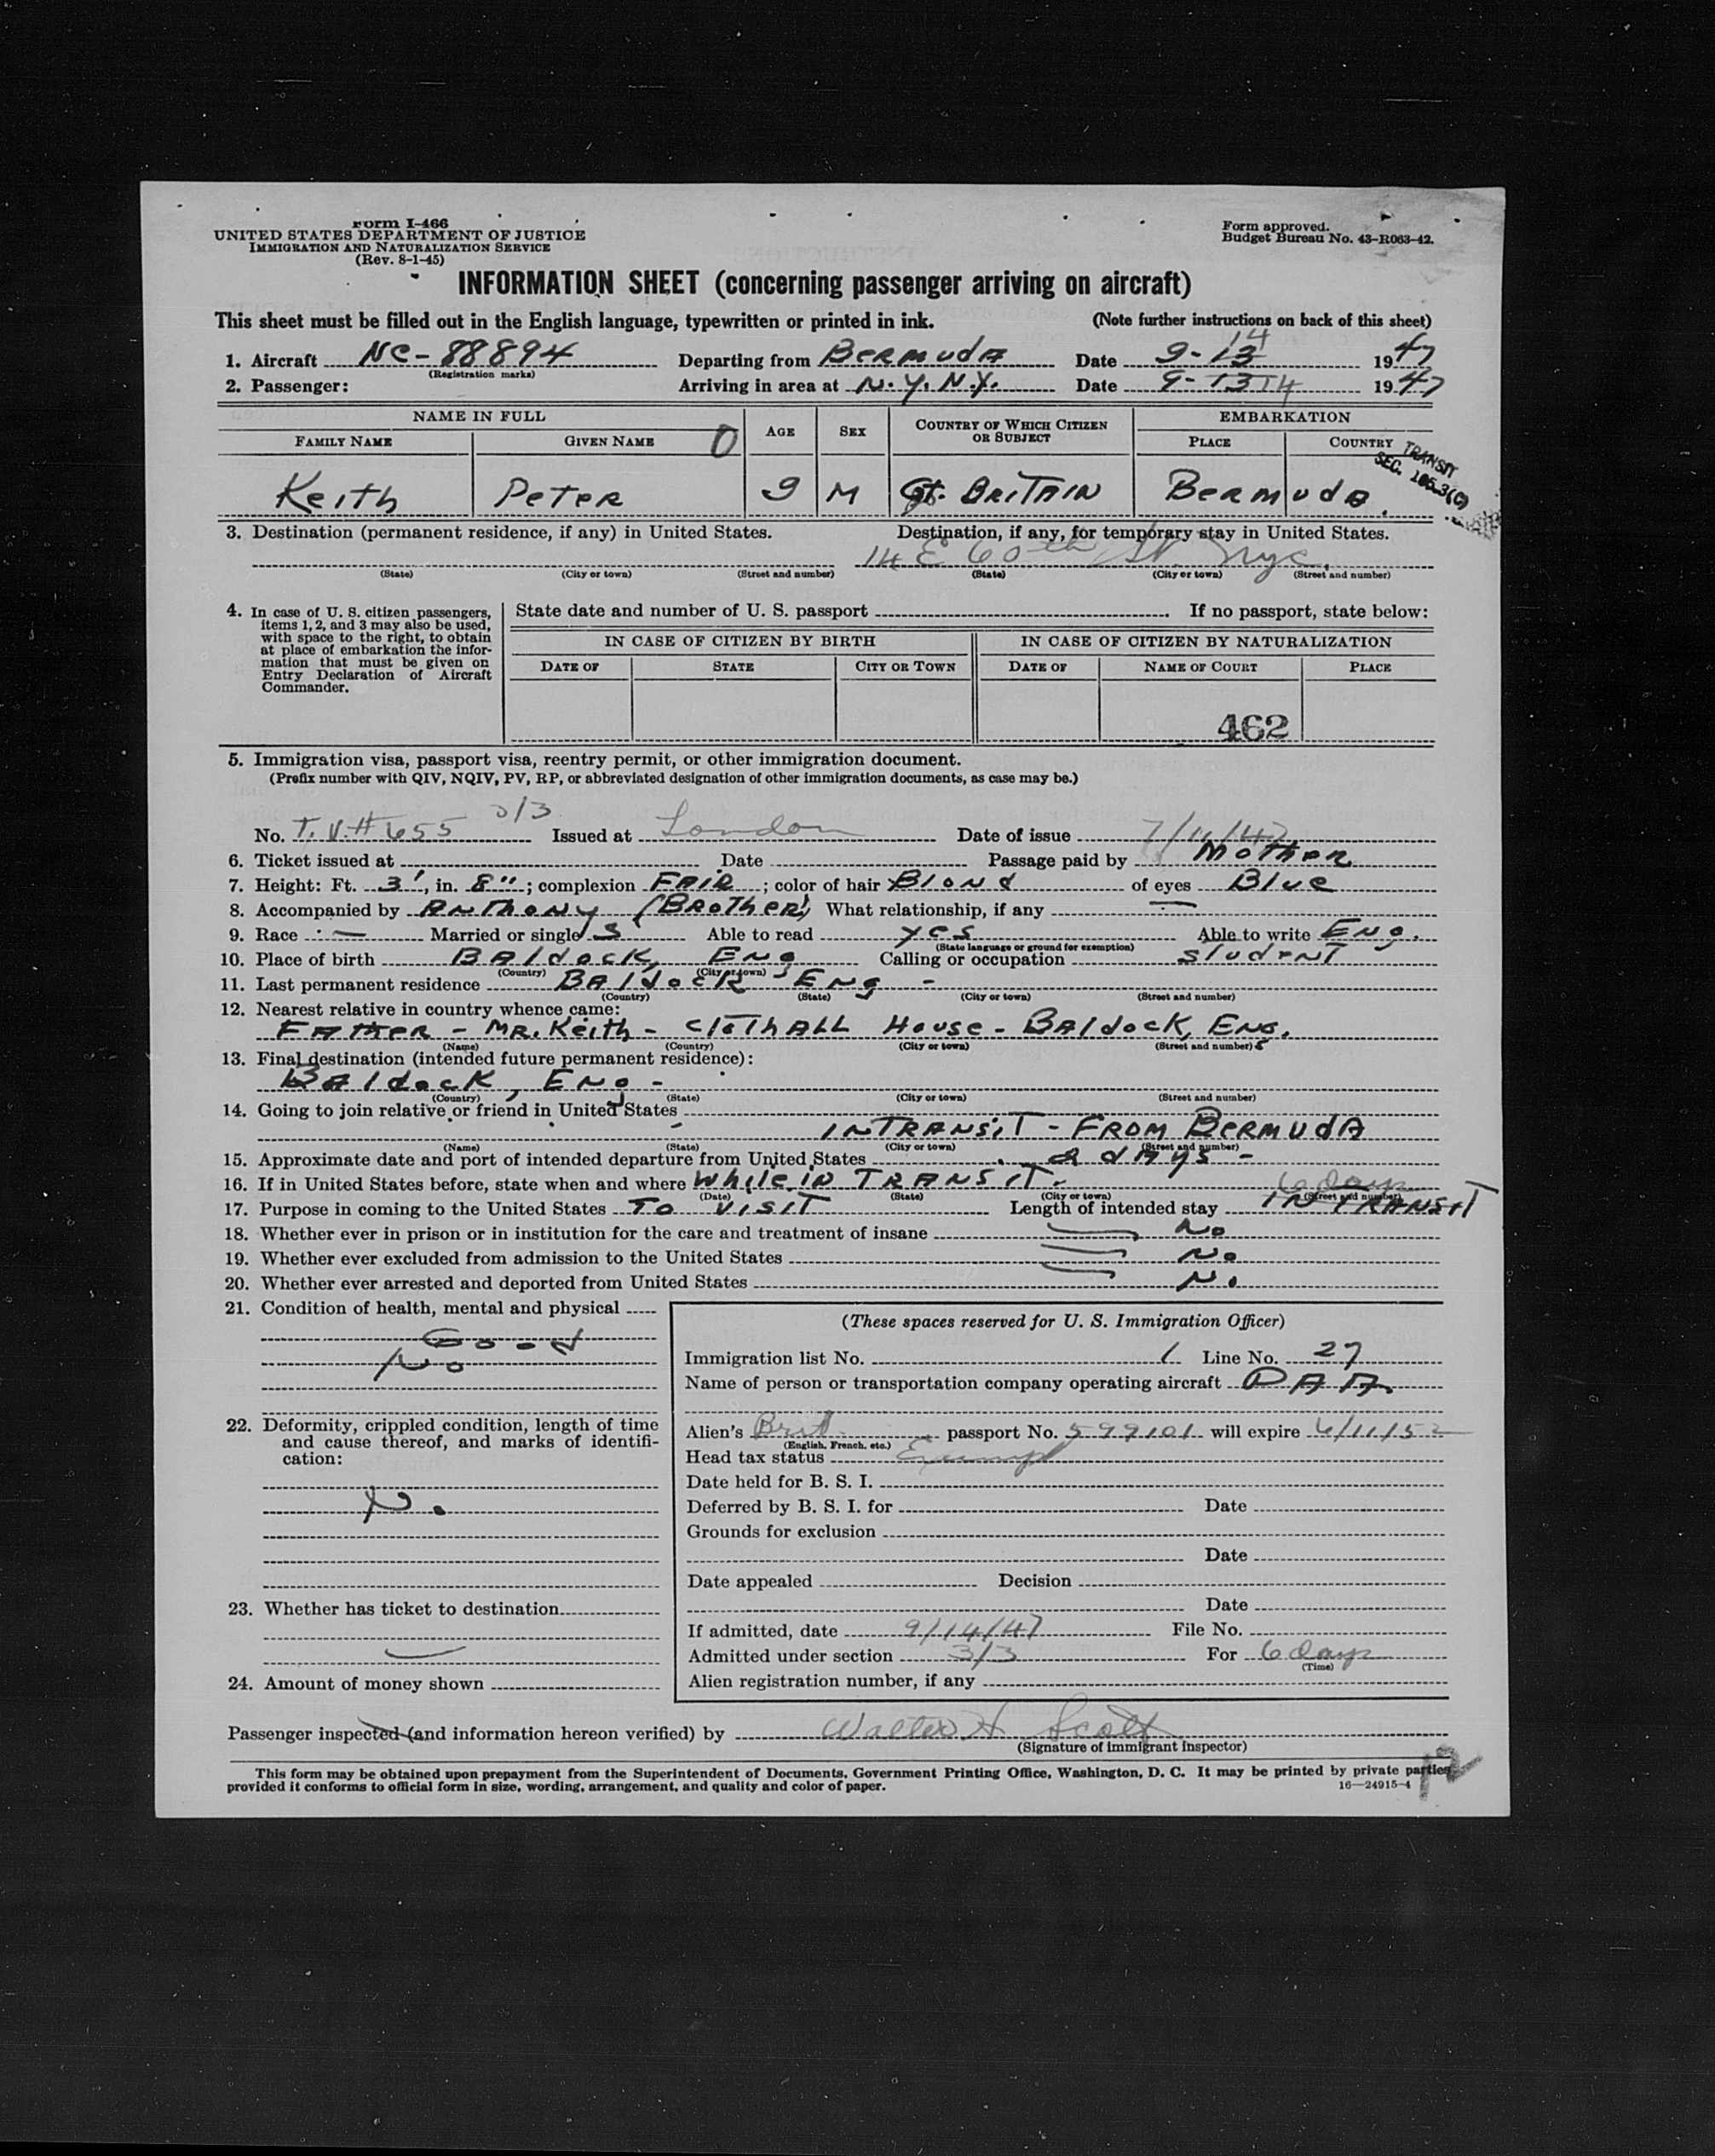 Form I-466
UNITED STATES DEPARTMENT OF JUSTICE
IMMIGRATION AND NATURALIZATION SERVICE
(Rev. 8-1-45)
Form approved.
Budget Bureau No. 43-R063-42.
INFORMATION SHEET (concerning passenger arriving on aircraft)
This sheet must be filled out in the English language, typewritten or printed in ink. (Note further instructions on back of this sheet)
14
1. Aircraft NC-88894 Departing from BERMUDA Date 9-13 1947
(Registration marks)
2. Passenger: Arriving in area at N.Y.N.Y. Date 9-13 14 1947
NAME IN FULL AGE SEX COUNTRY OF WHICH CITIZEN OR SUBJECT EMBARKATION
FAMILY NAME GIVEN NAME 0 PLACE COUNTRY
TRANSIT
SEC. 105.3(C)
Keith PETER 9 M Gt. BRITAIN BERMUDA.
3. Destination (permanent residence, if any) in United States. Destination, if any, for temporary stay in United States.
14 E 60th St. Nyc.
(State) (City or town) (Street and number) (State) (City or town) (Street and number)
4. In case of U. S. citizen passengers, items 1, 2, and 3 may also be used, with space to the right, to obtain at place of embarkation the information that must be given on Entry Declaration of Aircraft Commander.
State date and number of U. S. passport If no passport, state below:
IN CASE OF CITIZEN BY BIRTH IN CASE OF CITIZEN BY NATURALIZATION
DATE OF STATE CITY OR TOWN DATE OF NAME OF COURT PLACE
462
5. Immigration visa, passport visa, reentry permit, or other immigration document.
(Prefix number with QIV, NQIV, PV, RP, or abbreviated designation of other immigration documents, as case may be.)
3/3
No. T.V.# 655 Issued at London Date of issue 7/11/47
6. Ticket issued at Date Passage paid by MOTHER
7. Height: Ft. 3', in. 8"; complexion FAIR; color of hair Blond of eyes Blue
8. Accompanied by ANTHONY (BROTHER) What relationship, if any —
9. Race — Married or single S Able to read yes Able to write ENG.
(State language or ground for exemption)
10. Place of birth BALDOCK, ENG Calling or occupation STUDENT
(Country) (City or town)
11. Last permanent residence BALDOCK ENG -
(Country) (State) (City or town) (Street and number)
12. Nearest relative in country whence came:
FATHER - MR. Keith - CLOTHALL House - BALDOCK, ENG.
(Name) (Country) (City or town) (Street and number)
13. Final destination (intended future permanent residence):
BALDOCK, ENG -
(Country) (State) (City or town) (Street and number)
14. Going to join relative or friend in United States
INTRANSIT - FROM BERMUDA
(Name) (State) (City or town) (Street and number)
15. Approximate date and port of intended departure from United States 2 dAys -
16. If in United States before, state when and where While IN TRANSIT - 6 days
(Date) (State) (City or town) (Street and number)
17. Purpose in coming to the United States TO VISIT Length of intended stay IN TRANSIT
18. Whether ever in prison or in institution for the care and treatment of insane No
19. Whether ever excluded from admission to the United States No
20. Whether ever arrested and deported from United States No
21. Condition of health, mental and physical
Good
No
22. Deformity, crippled condition, length of time and cause thereof, and marks of identification:
No
23. Whether has ticket to destination
24. Amount of money shown
(These spaces reserved for U. S. Immigration Officer)
Immigration list No. 1 Line No. 27
Name of person or transportation company operating aircraft PAA
Alien's Brit passport No. 599101 will expire 6/11/52
(English, French, etc.)
Head tax status Exempt
Date held for B. S. I.
Deferred by B. S. I. for Date
Grounds for exclusion
Date
Date appealed Decision
Date
If admitted, date 9/14/47 File No.
Admitted under section 3/3 For 6 days
(Time)
Alien registration number, if any
Passenger inspected (and information hereon verified) by Walter H Scott
(Signature of Immigrant Inspector)
This form may be obtained upon prepayment from the Superintendent of Documents, Government Printing Office, Washington, D. C. It may be printed by private parties
provided it conforms to official form in size, wording, arrangement, and quality and color of paper. 16—24915-4
12